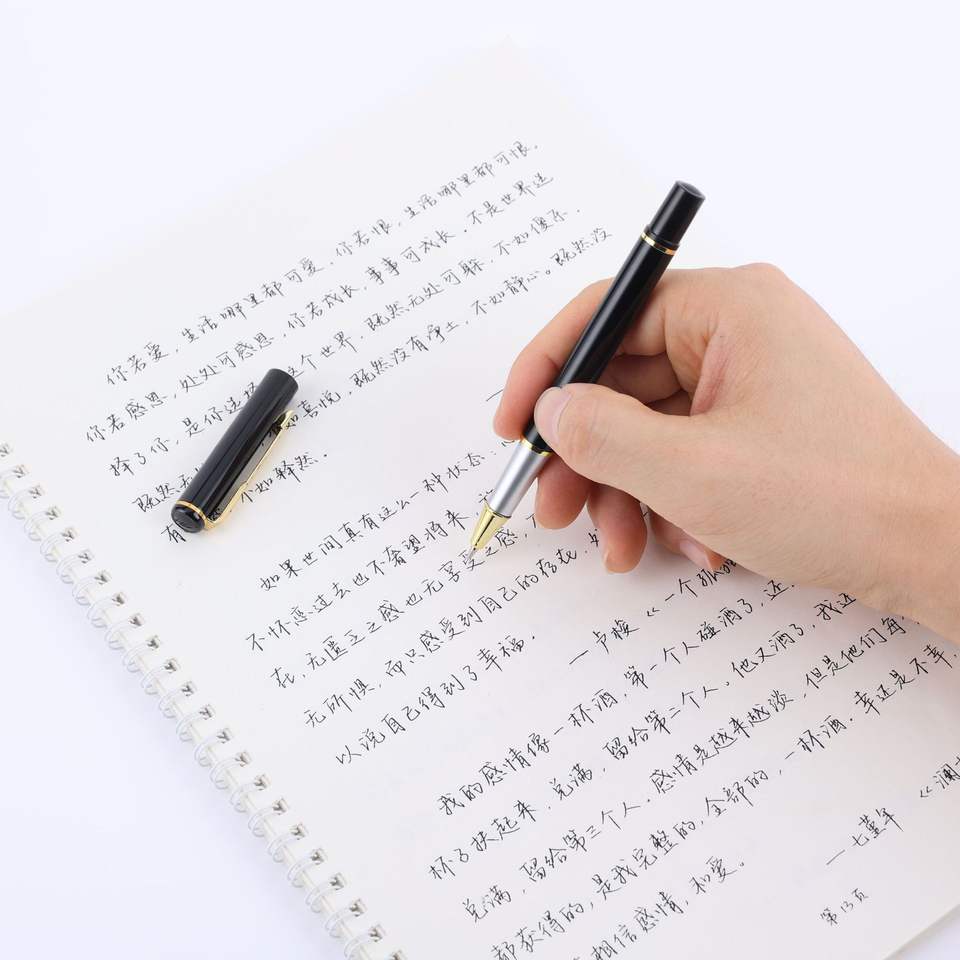 你若爱，生活哪里都可爱．你若恨，生活哪里都可恨．
你若感恩，处处可感恩，你若成长，事事可成长．不是世界选
择了你，是你选择这个世界．既然无处可躲．不如傻乐．
既然无 如喜悦，既然没有净土，不如静心。既然没
有 不如释然．
如果世间真有这么一种状态：心
不怀恋过去也不奢望将来
在，无匮乏之感也无享受之感，
无所惧，而只感受到自己的存在，
以说自己得到了幸福．
—卢梭《一个孤独
我的感情像一杯酒．第一个人碰洒了，还
杯子扶起来，兑满，留给第二个人．他又洒了，我还
兑满，留给第三个人．感情是越来越淡，但是他们每
都获得的，是我完整的，全部的，一杯酒．幸还是不幸，
相信感情，和爱。
—七堇年《澜
第13页